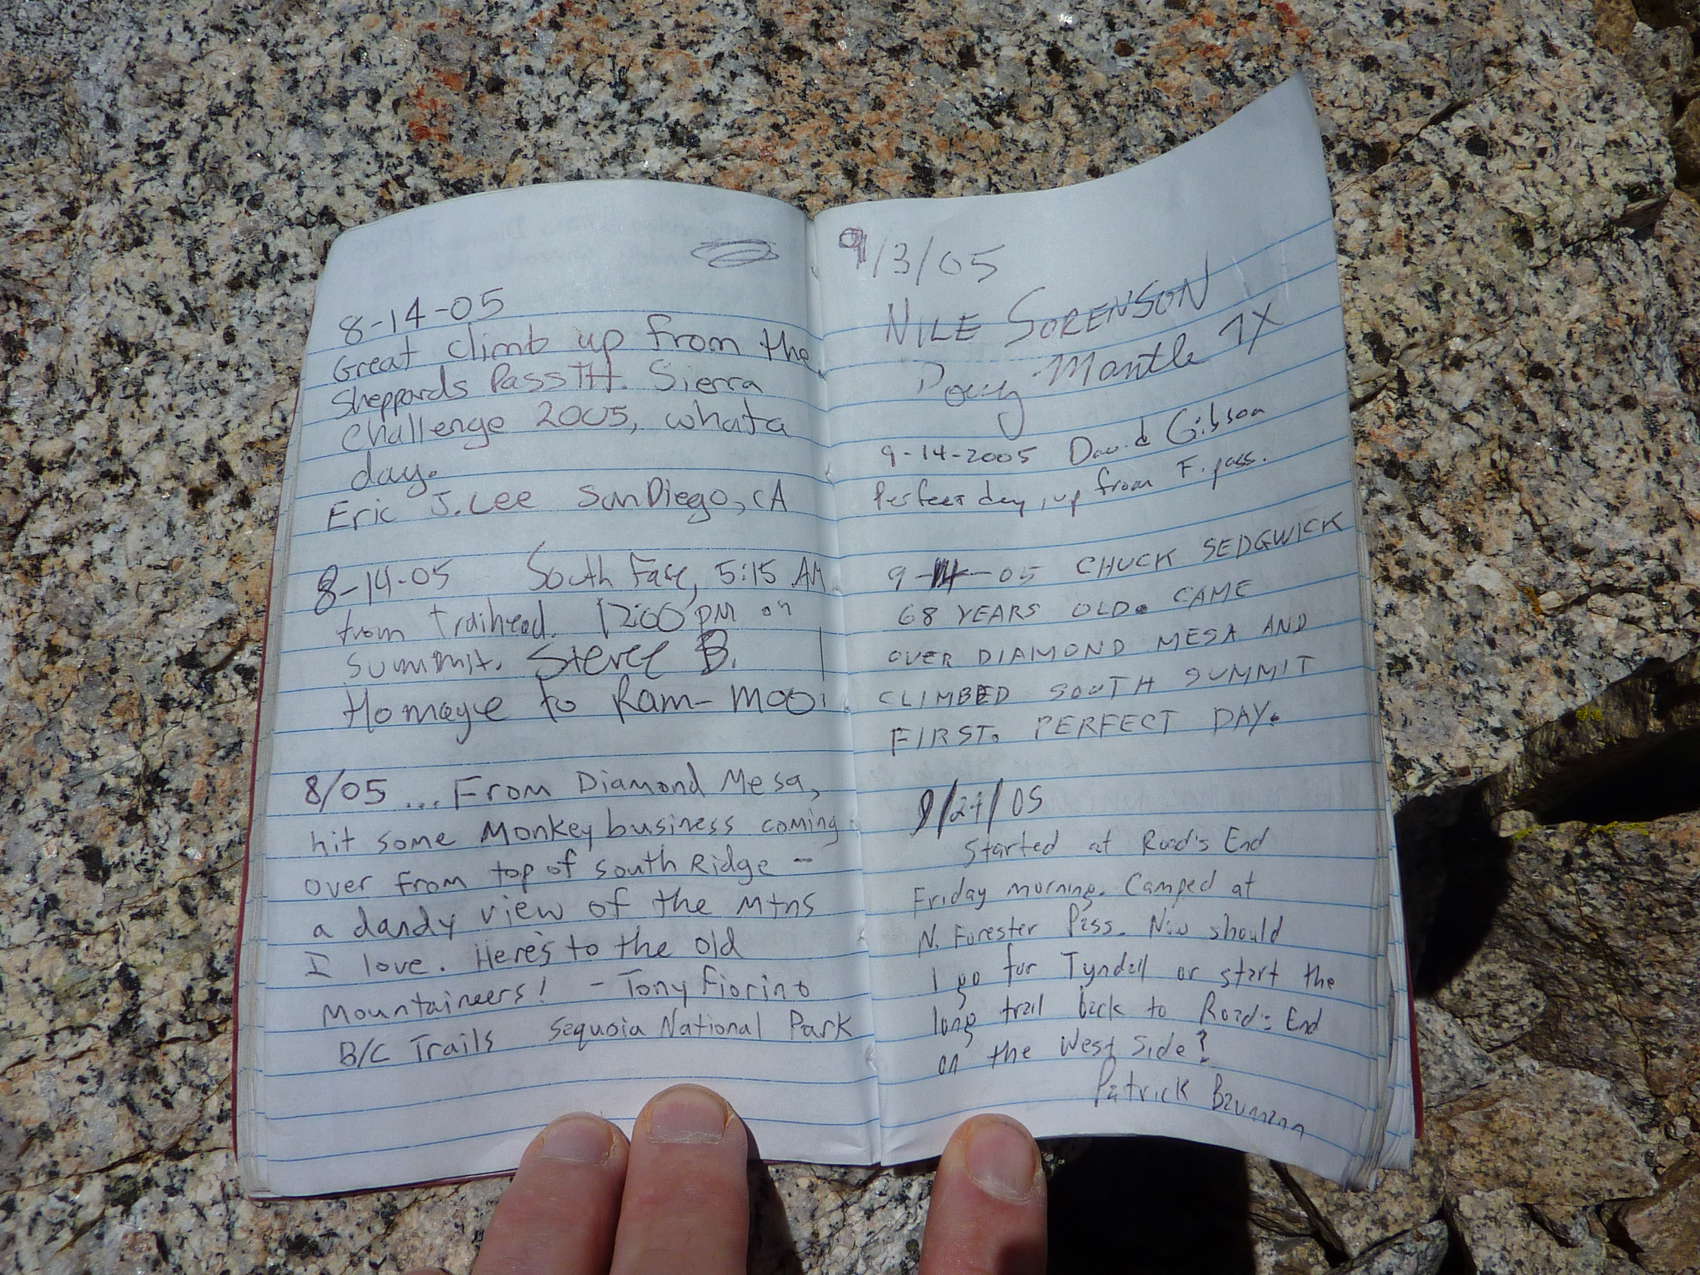 8-14-05
Great climb up from the
Sheppards Pass TH. Sierra
Challenge 2005, what a
day.
Eric J. Lee San Diego, CA
8-14-05 South Face, 5:15 AM
from trailhead. 12:00 PM on
summit. Steve B.
Homage to Ram-moo!
8/05 ... From Diamond Mesa,
hit some Monkey business coming
over from top of South Ridge -
a dandy view of the Mtns
I love. Here's to the old
Mountaineers! - Tony Fiorino
B/C Trails Sequoia National Park
9/3/05
NILE SORENSON
Doug Mantle 7X
9-14-2005 David Gibson
Perfect day, up from F. pass.
9-14-05 CHUCK SEDGWICK
68 YEARS OLD. CAME
OVER DIAMOND MESA AND
CLIMBED SOUTH SUMMIT
FIRST. PERFECT DAY.
9/24/05
Started at Road's End
Friday morning. Camped at
N. Forester Pass. Now should
I go for Tyndall or start the
long trail back to Road's End
on the West Side?
Patrick Baumann